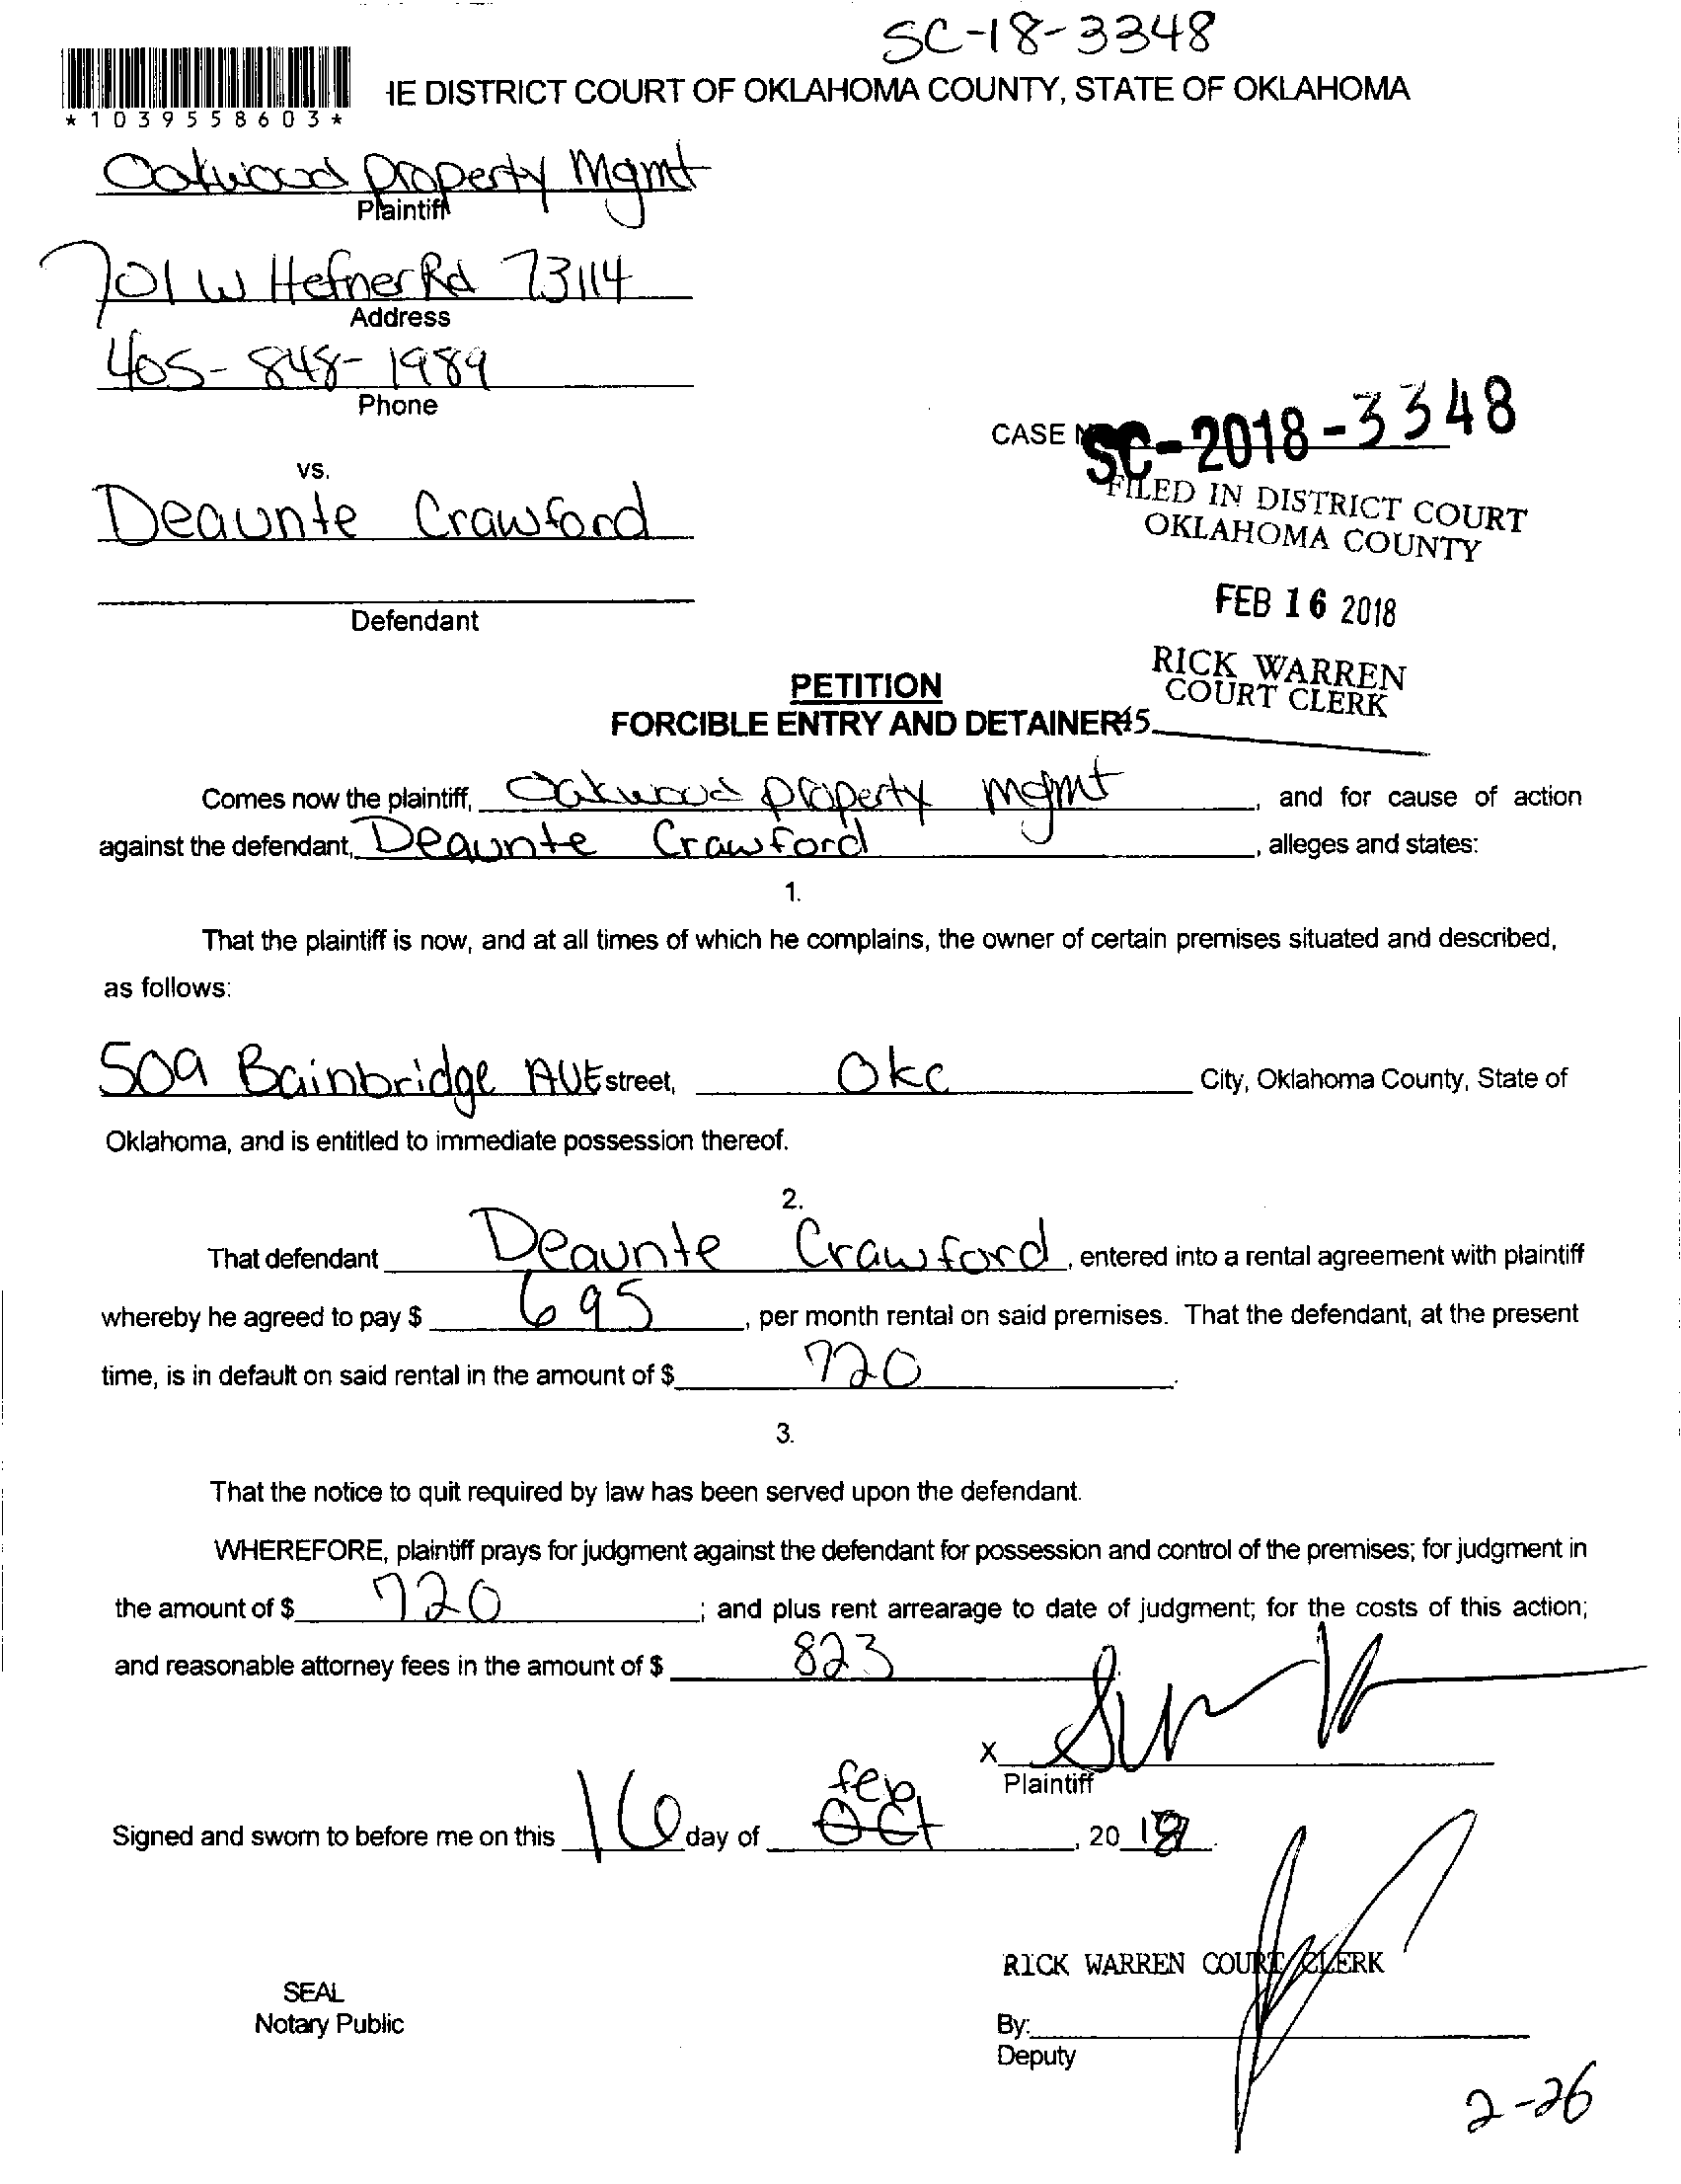 SC-18-3348
*1039558603*
HE DISTRICT COURT OF OKLAHOMA COUNTY, STATE OF OKLAHOMA
Oakwood Property Mgmt
Plaintiff
701 W Hefner Rd 73114
Address
405-848-1989
Phone
CASE N SC-2018-3348
vs.
FILED IN DISTRICT COURT
OKLAHOMA COUNTY
Deaunte Crawford
FEB 16 2018
Defendant
RICK WARREN
COURT CLERK
PETITION
FORCIBLE ENTRY AND DETAINER 45
Comes now the plaintiff, Oakwood Property Mgmt, and for cause of action
against the defendant, Deaunte Crawford, alleges and states:
1.
That the plaintiff is now, and at all times of which he complains, the owner of certain premises situated and described,
as follows:
509 Bainbridge AVE street, OKC City, Oklahoma County, State of
Oklahoma, and is entitled to immediate possession thereof.
2.
That defendant Deaunte Crawford, entered into a rental agreement with plaintiff
whereby he agreed to pay $ 695, per month rental on said premises. That the defendant, at the present
time, is in default on said rental in the amount of $ 720.
3.
That the notice to quit required by law has been served upon the defendant.
WHEREFORE, plaintiff prays for judgment against the defendant for possession and control of the premises; for judgment in
the amount of $ 720; and plus rent arrearage to date of judgment; for the costs of this action;
and reasonable attorney fees in the amount of $ 823
X
Plaintiff
feb
Signed and sworn to before me on this 16 day of Oct, 20 18.
RICK WARREN COURT CLERK
SEAL
Notary Public
By:
Deputy
2-26